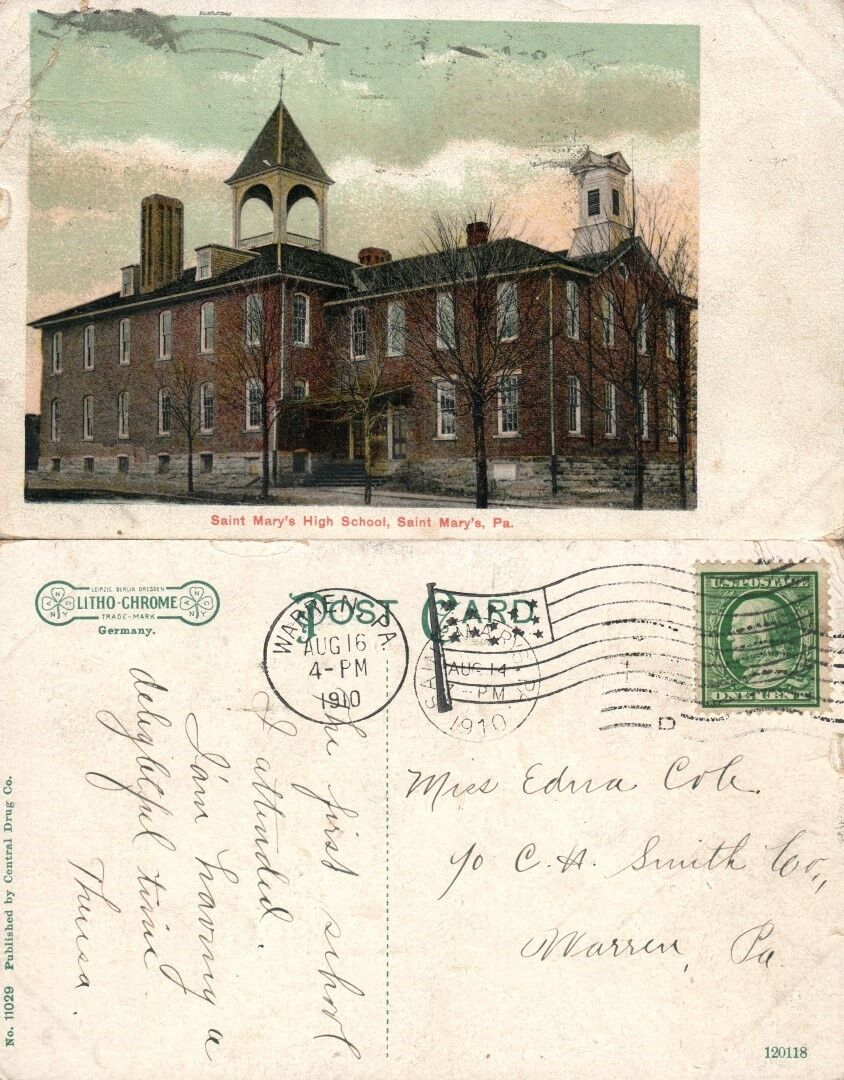 Saint Mary's High School, Saint Mary's, Pa.
LEIPZIG BERLIN DRESDEN
LITHO-CHROME
TRADE-MARK
Germany.
POST CARD
WARREN, PA.
AUG 16
4-PM
1910
AUG 14
-PM
1910
D
U.S. POSTAGE
ONE CENT
The first school
I attended.
I'm having a
delightful time
Theresa.
Miss Edna Cole.
c/o C. H. Smith Co.,
Warren, Pa.
No. 11029 Published by Central Drug Co.
120118